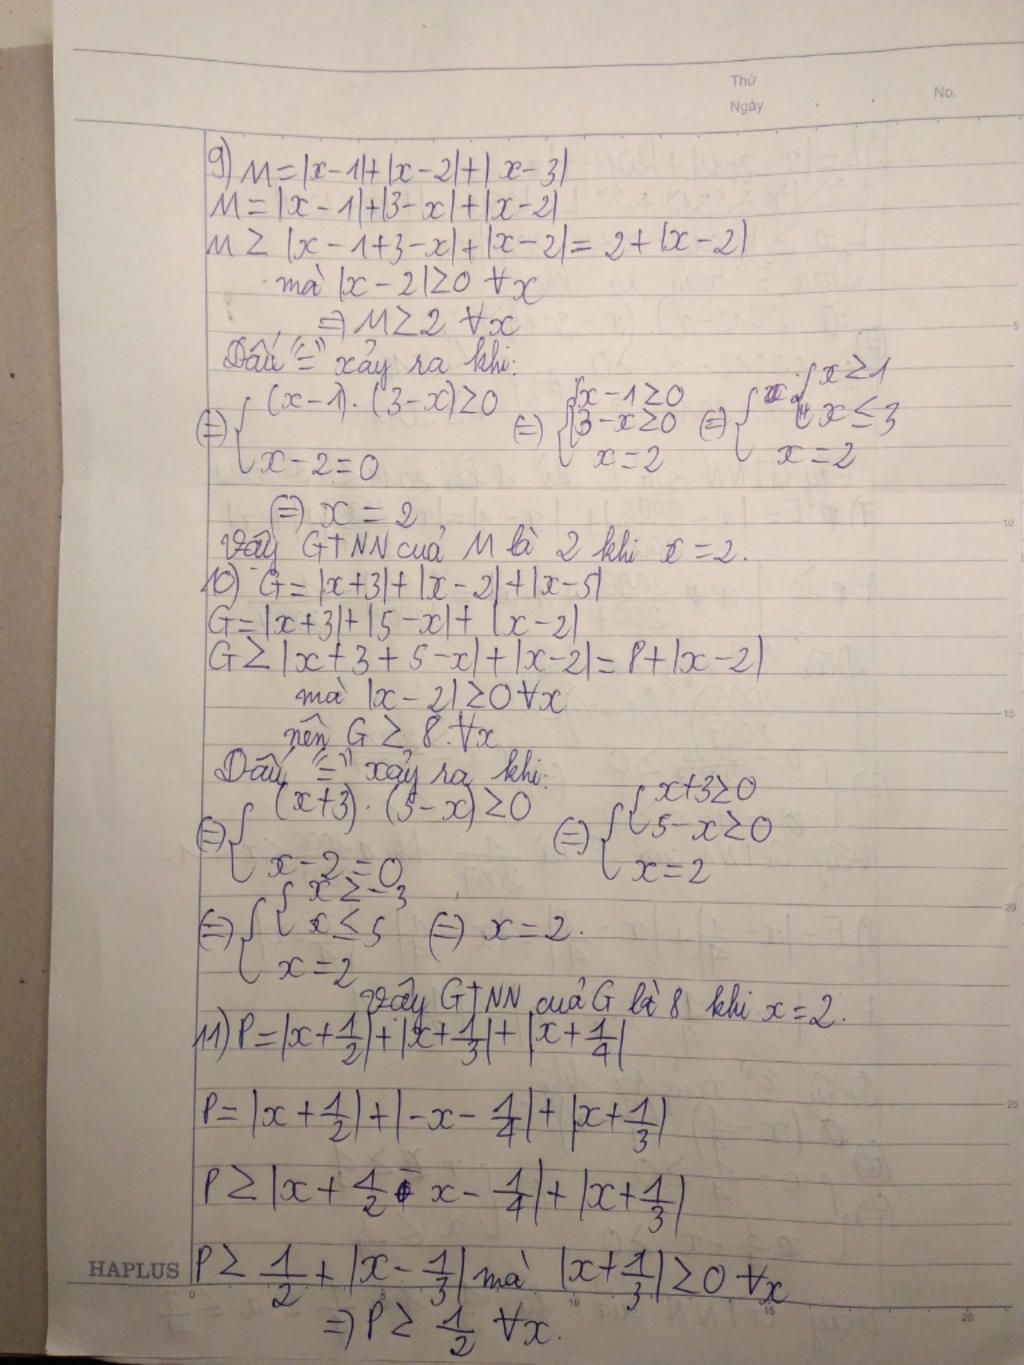 Thứ
Ngày
No.
9) M = |x-1|+|x-2|+|x-3|
M = |x-1|+|3-x|+|x-2|
M ≥ |x-1+3-x|+|x-2| = 2+|x-2|
mà |x-2| ≥ 0 ∀x
⇒ M ≥ 2 ∀x
Dấu "=" xảy ra khi:
(=) { (x-1).(3-x) ≥ 0 (=) { { x-1 ≥ 0 (=) { { x ≥ 1
3-x ≥ 0 x ≤ 3
x-2 = 0 x = 2 x = 2
5
(=) x = 2
10
Vậy GTNN cuả M là 2 khi x = 2.
10) G = |x+3|+|x-2|+|x-5|
G = |x+3|+|5-x|+|x-2|
G ≥ |x+3+5-x|+|x-2| = 8+|x-2|
mà |x-2| ≥ 0 ∀x
15
nên G ≥ 8 ∀x
Dấu "=" xảy ra khi:
(=) { (x+3).(5-x) ≥ 0 (=) { { x+3 ≥ 0
5-x ≥ 0
x-2 = 0 x = 2
20
(=) { { x ≥ -3
x ≤ 5 (=) x = 2.
x = 2
Vậy GTNN cuả G là 8 khi x = 2.
11) P = |x+1/2|+|x+1/3|+|x+1/4|
25
P = |x+1/2|+|-x-1/4|+|x+1/3|
P ≥ |x+1/2-x-1/4|+|x+1/3|
HAPLUS
P ≥ 1/2+|x-1/3| mà |x+1/3| ≥ 0 ∀x
0 5 10 15 20
⇒ P ≥ 1/2 ∀x.